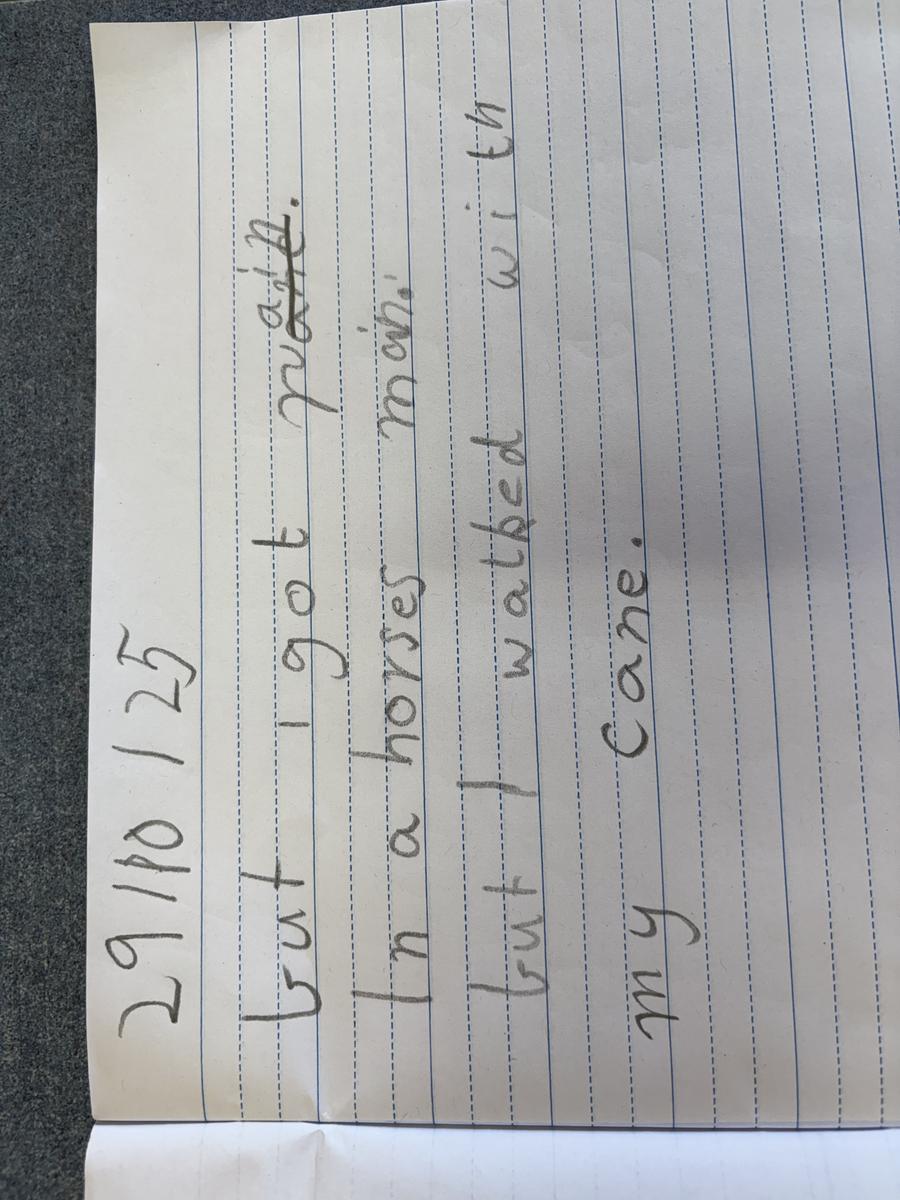 29/10/25
but i got pain.
In a horses main.
but I walked with
my cane.